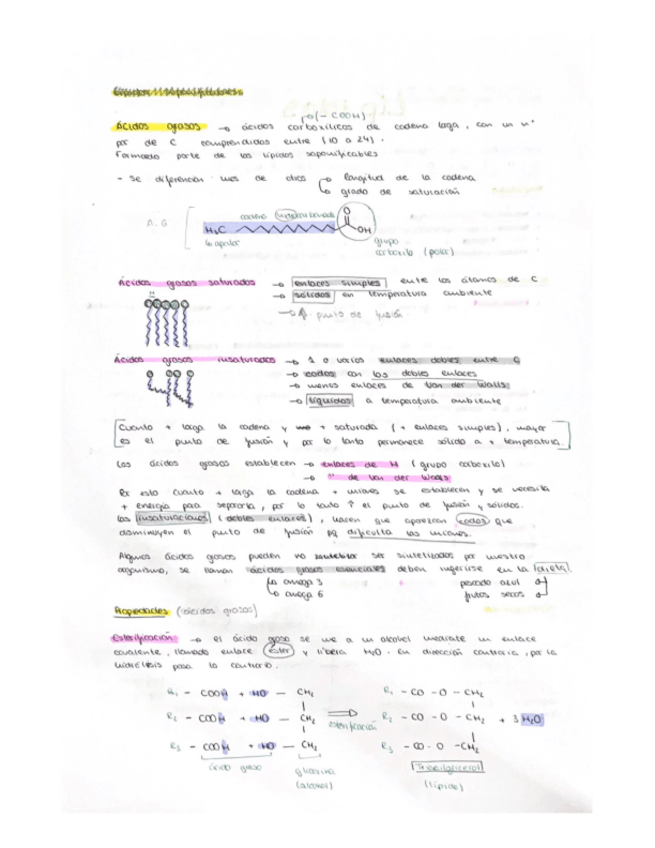 Ácidos grasos → ácidos carboxílicos de cadena larga, con un nº
(- COOH)
par de C comprendidos entre (10 a 24).
Formando parte de los lípidos saponificables
- Se diferencian unos de otros → longitud de la cadena
→ grado de saturación
A.G
cadena hidrocarbonada
H₃C
O
OH
apolar
grupo
carboxilo (polar)
Ácidos grasos saturados → enlaces simples entre los átomos de C
→ sólidos en temperatura ambiente
→ punto de fusión
Ácidos grasos insaturados → 1 o varios enlaces dobles entre C
→ codos con los dobles enlaces
→ menos enlaces de Van der Walls
→ líquidos a temperatura ambiente
Cuanto + larga la cadena y + saturada (+ enlaces simples), mayor
es el punto de fusión y por lo tanto permanece sólido a + temperatura.
Los ácidos grasos establecen → enlaces de H (grupo carboxilo)
→ " de Van der Walls
Por esto cuanto + larga la cadena + uniones se establecen y se necesita
+ energía para separarla, por lo tanto ↑ el punto de fusión y sólidos.
Las insaturaciones (dobles enlaces), hacen que aparezcan codos que
disminuyen el punto de fusión pq dificulta las uniones.
Algunos ácidos grasos pueden no ser sintetizados por nuestro
organismo, se llaman ácidos grasos esenciales deben ingerirse en la dieta
omega 3 pescado azul
omega 6 frutos secos
Propiedades (ácidos grasos)
Esterificación → el ácido graso se une a un alcohol mediante un enlace
covalente, llamado enlace éster y libera H₂O. En dirección contraria, por la
hidrólisis pasa lo contrario.
R₁ - COOH + HO - CH₂ R₁ - CO - O - CH₂
R₂ - COOH + HO - CH₂ esterificación R₂ - CO - O - CH₂ + 3 H₂O
R₃ - COOH + HO - CH₂ R₃ - CO - O - CH₂
ácido graso glicerina Triacilglicerol
(alcohol) (lípido)